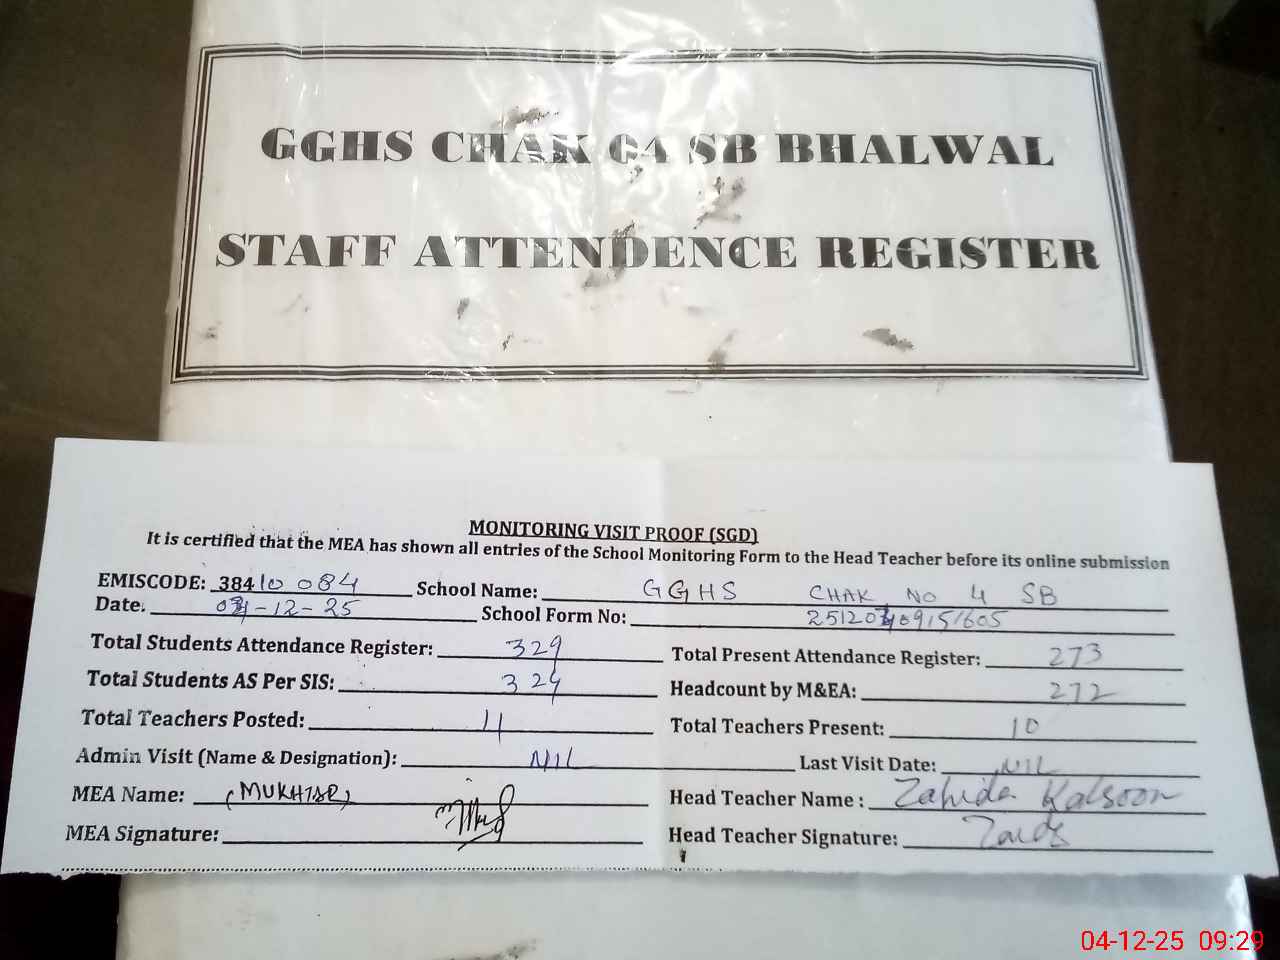 GGHS CHAK 04 SB BHALWAL
STAFF ATTENDENCE REGISTER
MONITORING VISIT PROOF (SGD)
It is certified that the MEA has shown all entries of the School Monitoring Form to the Head Teacher before its online submission
EMISCODE: 38410084 School Name: GGHS CHAK NO 4 SB
Date: 04-12-25 School Form No:
Total Students Attendance Register: 329 Total Present Attendance Register: 273
Total Students AS Per SIS: 324 Headcount by M&EA: 272
Total Teachers Posted: 11 Total Teachers Present: 10
Admin Visit (Name & Designation): NIL Last Visit Date: NIL
MEA Name: (MUKHTAR) Head Teacher Name : Zahida Kalsoom
MEA Signature: Head Teacher Signature:
04-12-25 09:29